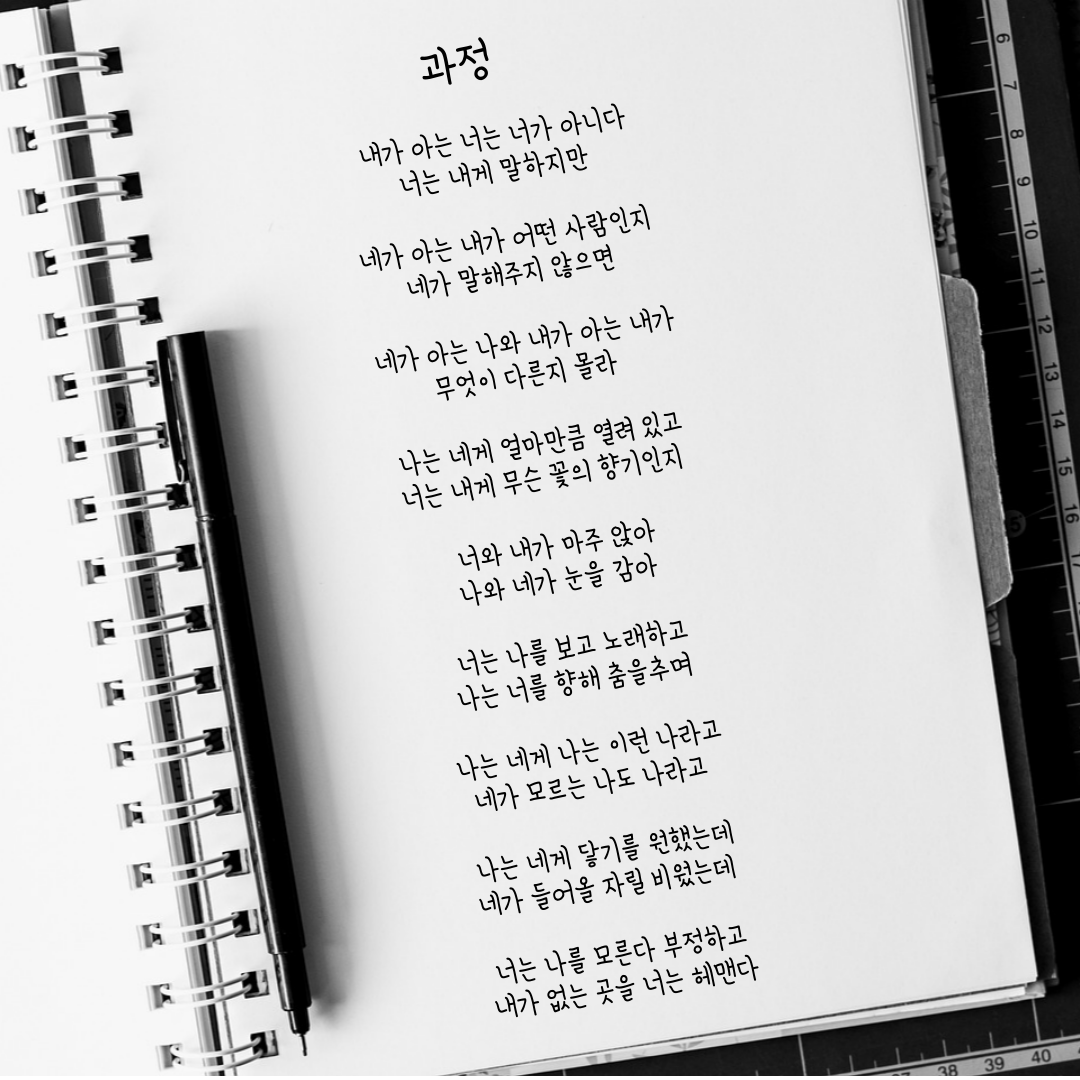 과정
내가 아는 너는 너가 아니다
너는 내게 말하지만
네가 아는 내가 어떤 사람인지
네가 말해주지 않으면
네가 아는 나와 내가 아는 내가
무엇이 다른지 몰라
나는 네게 얼마만큼 열려 있고
너는 내게 무슨 꽃의 향기인지
너와 내가 마주 앉아
나와 네가 눈을 감아
너는 나를 보고 노래하고
나는 너를 향해 춤을추며
나는 네게 나는 이런 나라고
네가 모르는 나도 나라고
나는 네게 닿기를 원했는데
네가 들어올 자릴 비웠는데
너는 나를 모른다 부정하고
내가 없는 곳을 너는 헤맨다
6
7
8
9
10
11
12
13
14
15
16
37
38
39
40